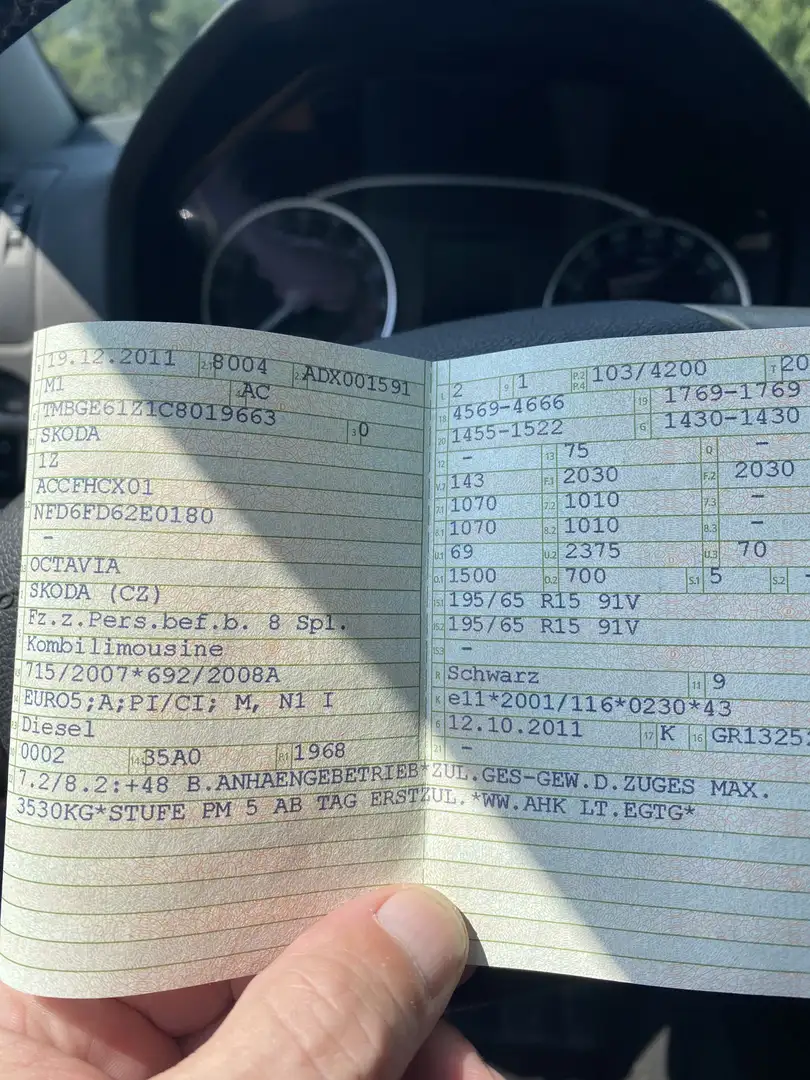 19.12.2011 2.1 8004 ADX001591
M1 AC
TMBGE61Z1C8019663 3 0
SKODA
1Z
ACCFHCX01
NFD6FD62E0180
-
OCTAVIA
SKODA (CZ)
Fz.z.Pers.bef.b. 8 Spl.
Kombilimousine
715/2007*692/2008A
EURO5;A;PI/CI; M, N1 I
Diesel
0002 14 35A0 P.1 1968
L 2 9 1 P.2 P.4 103/4200 T 20
18 4569-4666 19 1769-1769
20 1455-1522 G 1430-1430
12 - 13 75 Q -
V.7 143 F.1 2030 F.2 2030
7.1 1070 7.2 1010 7.3 -
8.1 1070 8.2 1010 8.3 -
U.1 69 U.2 2375 U.3 70
O.1 1500 O.2 700 S.1 5 S.2 -
15.1 195/65 R15 91V
15.2 195/65 R15 91V
15.3 -
R Schwarz 11 9
K e11*2001/116*0230*43
6 12.10.2011 17 K 16 GR1325
21 -
7.2/8.2:+48 B.ANHAENGEBETRIEB*ZUL.GES-GEW.D.ZUGES MAX.
3530KG*STUFE PM 5 AB TAG ERSTZUL.*WW.AHK LT.EGTG*